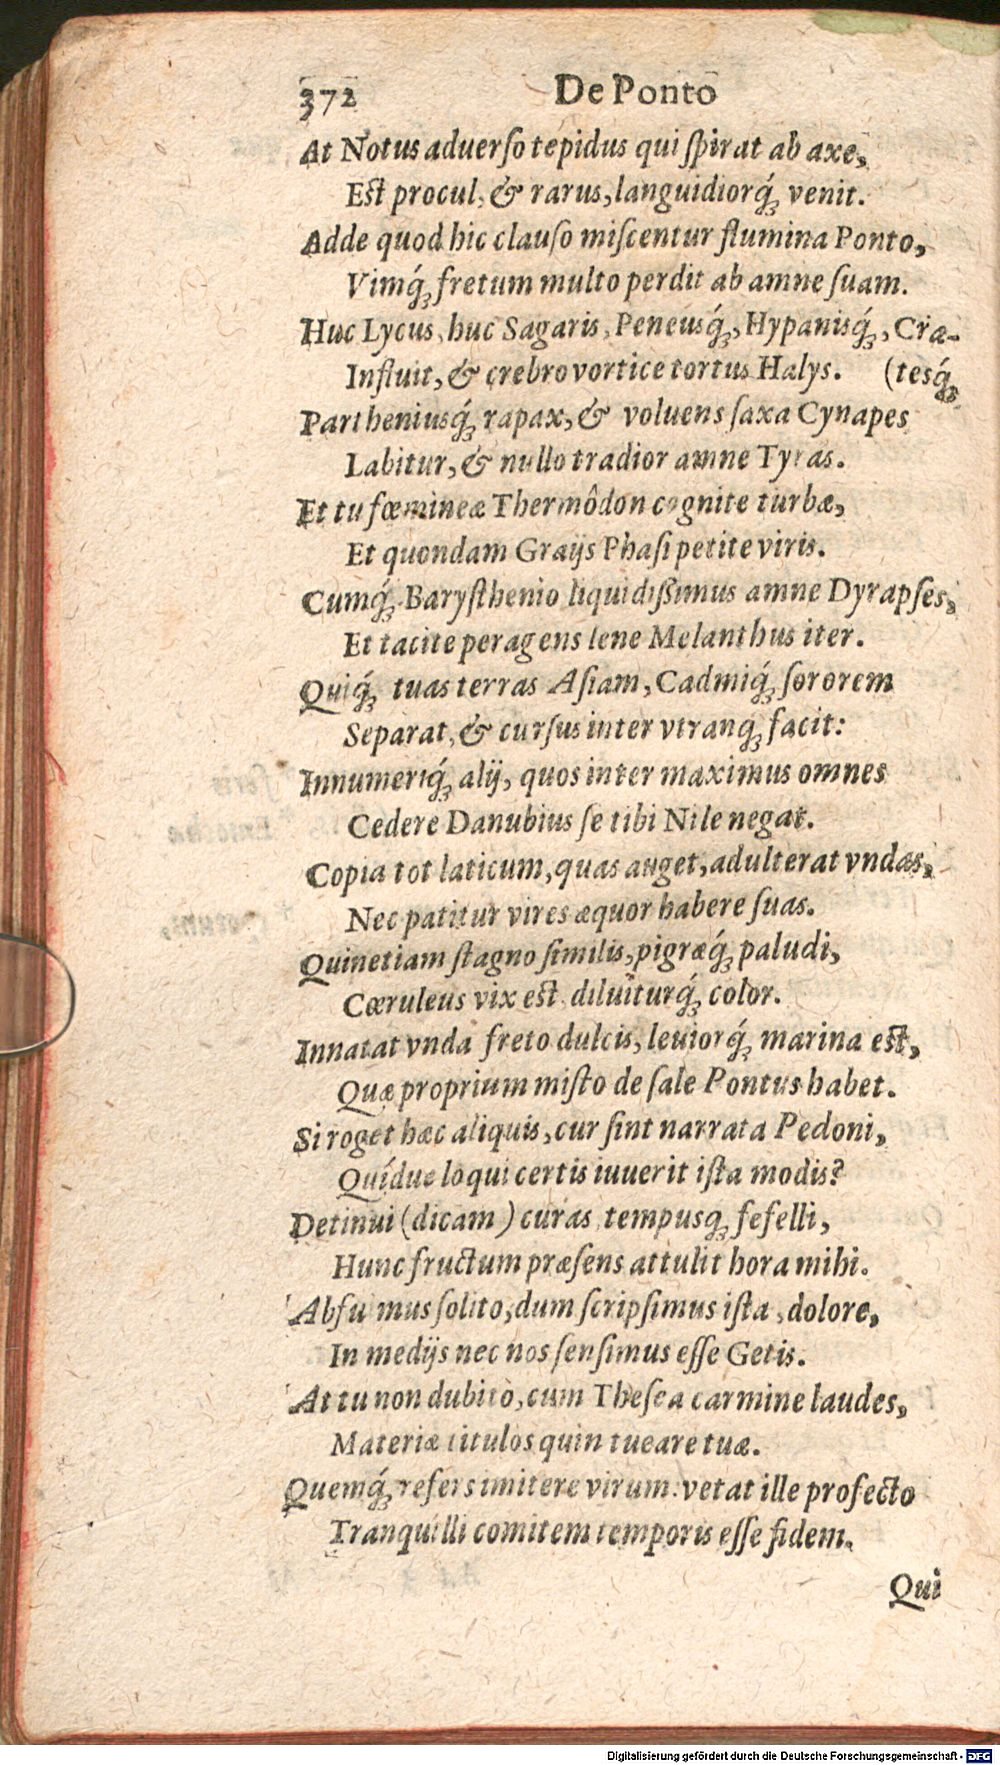 372 De Ponto
At Notus aduerſo tepidus qui ſpirat ab axe,
Eſt procul, & rarus, languidiorq́; venit.
Adde quod hic clauſo miſcentur flumina Ponto,
Vimq́; fretum multo perdit ab amne ſuam.
Huc Lycus, huc Sagaris, Peneusq́;, Hypanisq́;, Cra-
Influit, & crebro vortice tortus Halys. (tesq́;
Partheniusq́; rapax, & voluens ſaxa Cynapes
Labitur, & nullo tradior amne Tyras.
Et tu fœmineæ Thermôdon cognite turbæ,
Et quondam Graijs Phaſi petite viris.
Cumq́; Baryſthenio liquidiſſimus amne Dyrapſes,
Et tacite peragens lene Melanthus iter.
Quiq́; tuas terras Aſiam, Cadmiq́; ſororem
Separat, & curſus inter vtranq; facit:
Innumeriq́; alij, quos inter maximus omnes
Cedere Danubius ſe tibi Nile negat.
Copia tot laticum, quas auget, adulterat vndas,
Nec patitur vires æquor habere ſuas.
Quinetiam ſtagno ſimilis, pigræq́; paludi,
Cœruleus vix eſt diluiturq́; color.
Innatat vnda freto dulcis, leuiorq́; marina eſt,
Quæ proprium miſto de ſale Pontus habet.
Si roget hæc aliquis, cur ſint narrata Pedoni,
Quídue loqui certis iuuerit iſta modis?
Detinui (dicam) curas, tempusq; fefelli,
Hunc fructum præſens attulit hora mihi.
Abfu mus ſolito, dum ſcripſimus iſta, dolore,
In medijs nec nos ſenſimus eſſe Getis.
At tu non dubito, cum Theſea carmine laudes,
Materiæ titulos quin tueare tuæ.
Quemq́; refers imitere virum. vetat ille profecto
Tranquilli comitem temporis eſſe fidem.
Qui
Digitalisierung gefördert durch die Deutsche Forschungsgemeinschaft - DFG